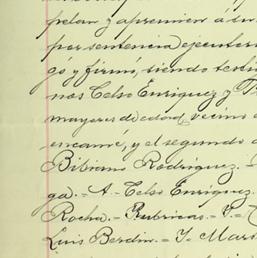 pelan y apremien á lu
por sentencia ejecutori
gó y firmó, siendo testi
nos Celso Enriquez y
mayores de edad, vecino
encarné, y el segundo d
Bibiano Rodríguez.-
ga.- A- Celso Enriquez.
Rocha.- Rubricas.- P.-
Luis Berdin.- J- Mars